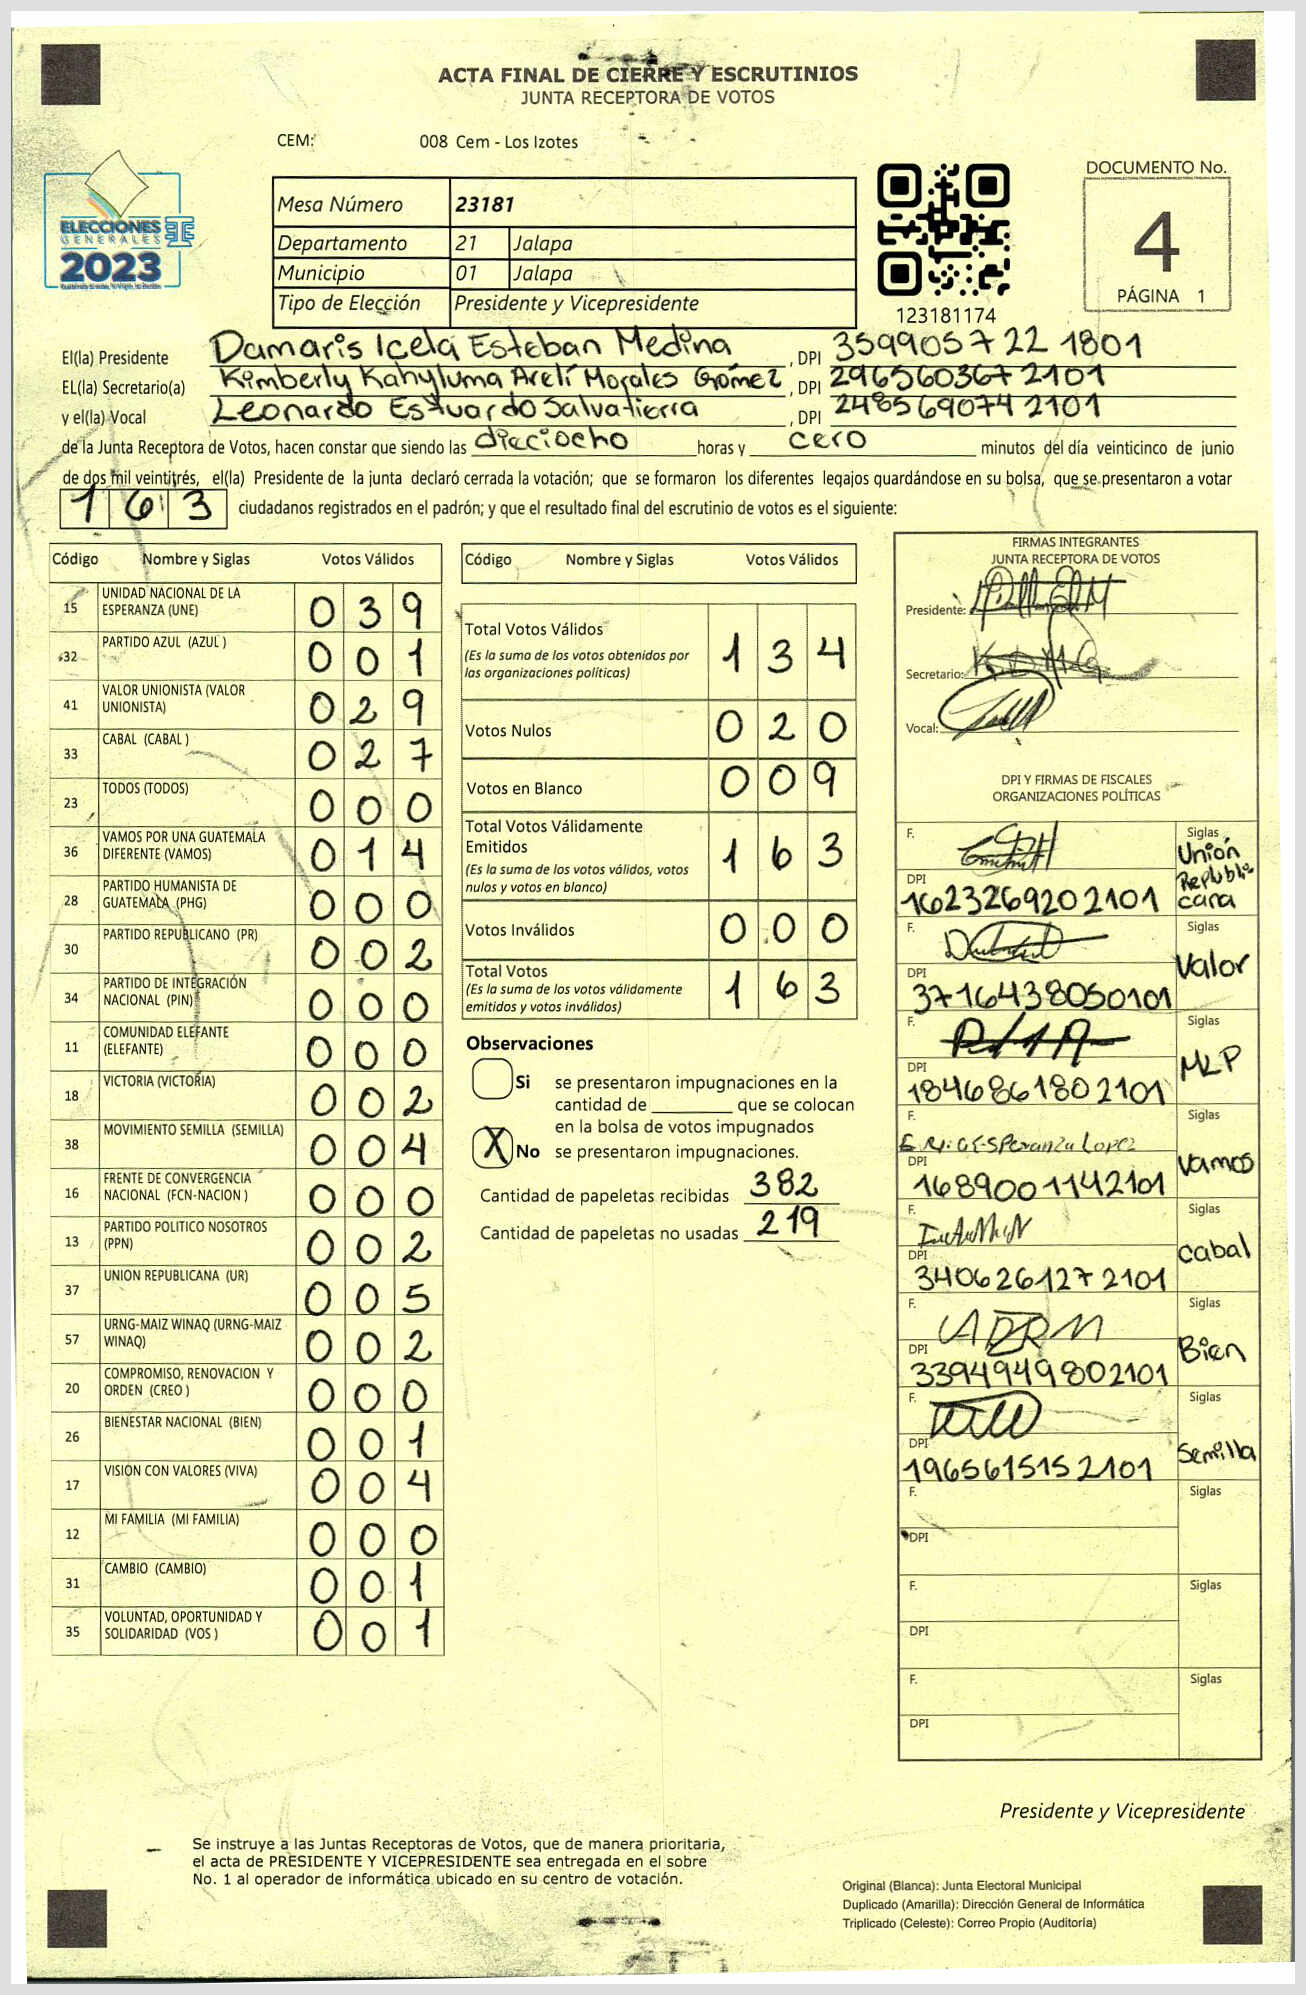 ACTA FINAL DE CIERRE Y ESCRUTINIOS
JUNTA RECEPTORA DE VOTOS
CEM: 008 Cem - Los Izotes
ELECCIONES
GENERALES
2023
Mesa Número 23181
Departamento 21 Jalapa
Municipio 01 Jalapa
Tipo de Elección Presidente y Vicepresidente
123181174
DOCUMENTO No.
4
PÁGINA 1
El(la) Presidente Damaris Icela Esteban Medina, DPI 3599057221801
EL(la) Secretario(a) Kimberly Kahyluma Arelí Morales Gómez, DPI 2965603672101
y el(la) Vocal Leonardo Estuardo Salvatierra, DPI 2485690742101
de la Junta Receptora de Votos, hacen constar que siendo las dieciocho horas y cero minutos del día veinticinco de junio
de dos mil veintitrés, el(la) Presidente de la junta declaró cerrada la votación; que se formaron los diferentes legajos guardándose en su bolsa, que se presentaron a votar
163 ciudadanos registrados en el padrón; y que el resultado final del escrutinio de votos es el siguiente:
Código Nombre y Siglas Votos Válidos
15 UNIDAD NACIONAL DE LA ESPERANZA (UNE) 039
32 PARTIDO AZUL (AZUL ) 001
41 VALOR UNIONISTA (VALOR UNIONISTA) 029
33 CABAL (CABAL ) 027
23 TODOS (TODOS) 000
36 VAMOS POR UNA GUATEMALA DIFERENTE (VAMOS) 014
28 PARTIDO HUMANISTA DE GUATEMALA (PHG) 000
30 PARTIDO REPUBLICANO (PR) 002
34 PARTIDO DE INTEGRACIÓN NACIONAL (PIN) 000
11 COMUNIDAD ELEFANTE (ELEFANTE) 000
18 VICTORIA (VICTORIA) 002
38 MOVIMIENTO SEMILLA (SEMILLA) 004
16 FRENTE DE CONVERGENCIA NACIONAL (FCN-NACION ) 000
13 PARTIDO POLITICO NOSOTROS (PPN) 002
37 UNION REPUBLICANA (UR) 005
57 URNG-MAIZ WINAQ (URNG-MAIZ WINAQ) 002
20 COMPROMISO, RENOVACION Y ORDEN (CREO ) 000
26 BIENESTAR NACIONAL (BIEN) 001
17 VISION CON VALORES (VIVA) 004
12 MI FAMILIA (MI FAMILIA) 000
31 CAMBIO (CAMBIO) 001
35 VOLUNTAD, OPORTUNIDAD Y SOLIDARIDAD (VOS ) 001
Código Nombre y Siglas Votos Válidos
Total Votos Válidos 134
(Es la suma de los votos obtenidos por
las organizaciones políticas)
Votos Nulos 020
Votos en Blanco 009
Total Votos Válidamente
Emitidos 163
(Es la suma de los votos válidos, votos
nulos y votos en blanco)
Votos Inválidos 000
Total Votos 163
(Es la suma de los votos válidamente
emitidos y votos inválidos)
Observaciones
Si se presentaron impugnaciones en la
cantidad de ________ que se colocan
en la bolsa de votos impugnados
X No se presentaron impugnaciones.
Cantidad de papeletas recibidas 382
Cantidad de papeletas no usadas 219
FIRMAS INTEGRANTES
JUNTA RECEPTORA DE VOTOS
Presidente:
Secretario:
Vocal:
DPI Y FIRMAS DE FISCALES
ORGANIZACIONES POLÍTICAS
F. Siglas Unión Republicana
DPI 1623269202101
F. Siglas Valor
DPI 3716438050101
F. Siglas MLP
DPI 1846861802101
F. Esperanza Lopez Siglas Vamos
DPI 1689001142101
F. Siglas Cabal
DPI 3406261272101
F. Siglas Bien
DPI 3394949802101
F. Siglas Semilla
DPI 1965615152101
F. Siglas
DPI
F. Siglas
DPI
F. Siglas
DPI
Presidente y Vicepresidente
Se instruye a las Juntas Receptoras de Votos, que de manera prioritaria,
el acta de PRESIDENTE Y VICEPRESIDENTE sea entregada en el sobre
No. 1 al operador de informática ubicado en su centro de votación.
Original (Blanca): Junta Electoral Municipal
Duplicado (Amarilla): Dirección General de Informática
Triplicado (Celeste): Correo Propio (Auditoría)